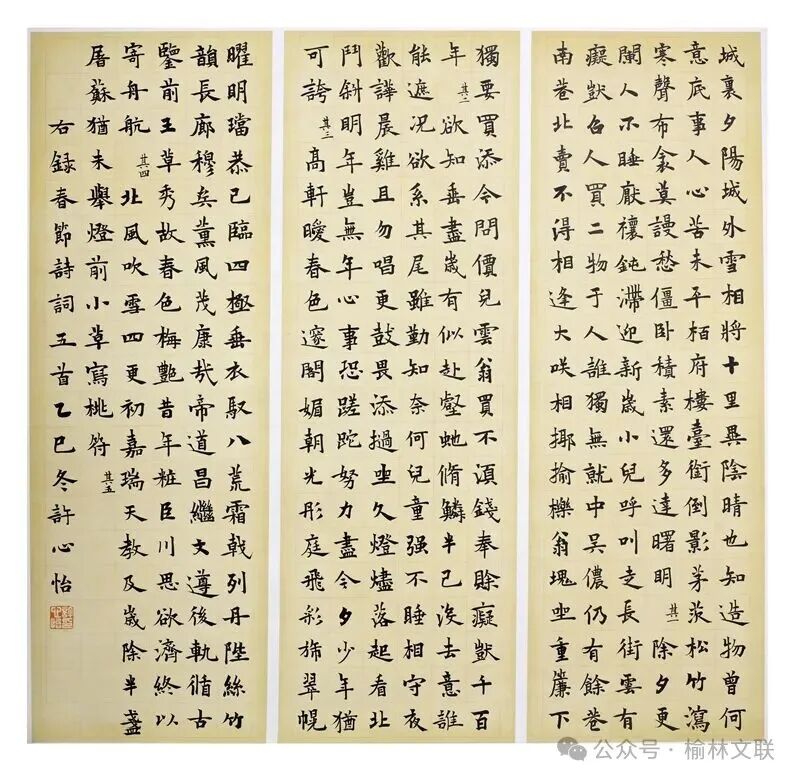 城裏夕陽城外雪相將十里異陰晴也知造物曾何
意底事人心苦未平栢府樓臺銜倒影茅茨松竹瀉
寒聲布衾莫謾愁僵卧積素還多達曙明 其一 除夕更
闌人不睡厭禳鈍滯迎新歲小兒呼叫走長街雲有
癡獃召人買二物于人誰獨無就中吳儂仍有餘巷
南巷北賣不得相逢大咲相揶揄櫟翁塊坐重簾下
獨要買添令問價兒雲翁買不須錢奉賖癡獃千百
年 其二 欲知垂盡歲有似赴壑虵脩鱗半已沒去意誰
能遮況欲系其尾雖勤知奈何兒童强不睡相守夜
歡譁晨雞且勿唱更鼓畏添撾坐久燈燼落起看北
鬥斜明年豈無年心事恐蹉跎努力盡今夕少年猶
可誇 其三 高軒曖春色邃閣媚朝光彤庭飛彩旆翠幌
曜明璫恭己臨四極垂衣馭八荒霜戟列丹陛絲竹
韻長廊穆矣薰風茂康哉帝道昌繼文遵後軌循古
鑒前王草秀故春色梅艷昔年粧巨川思欲濟終以
寄舟航 其四 北風吹雪四更初嘉瑞天教及歲除半盞
屠蘇猶未舉燈前小草寫桃符 其五
右録春節詩詞五首乙巳冬許心怡
公众号 · 榆林文联